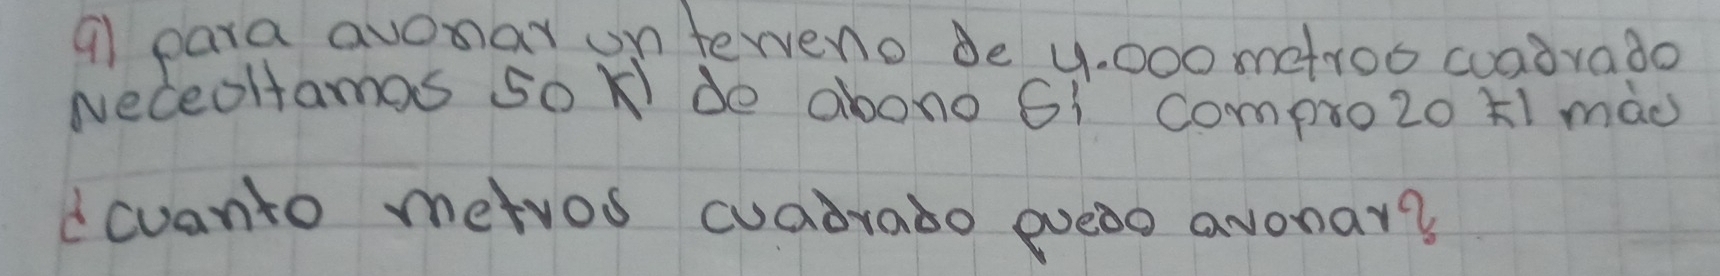 9) para avonar un terreno de 4.000 metros cuadrado
Neceoitamos 50 Kl de abono si compro 20 kl más
¿cuanto metros cuadrado puedo avonar?